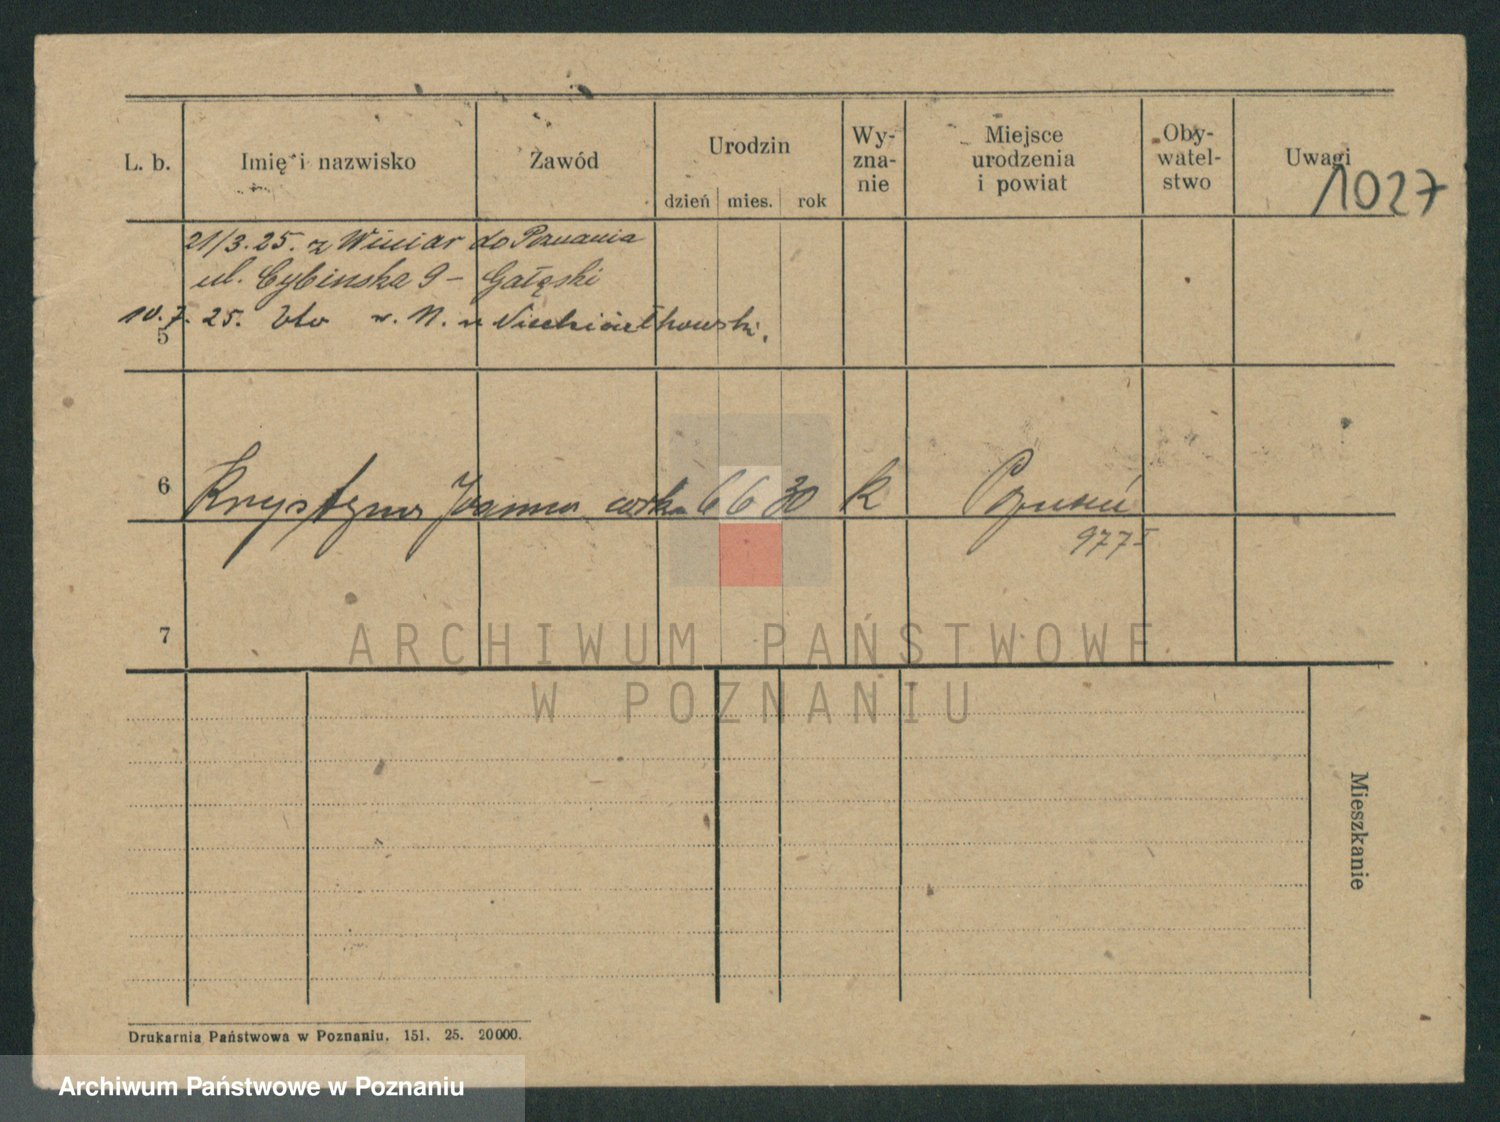 L. b. Imię i nazwisko Zawód Urodzin dzień mies. rok Wy-zna-nie Miejsce urodzenia i powiat Oby-watel-stwo Uwagi
1027
21/3.25. z Winiar do Poznania
ul. Cybinska 9 - Gałęski
10.7. 25.
5
6 Krystyna Joanna córka 6 6 30 k Poznań
977 I
7
ARCHIWUM PAŃSTWOWE
W POZNANIU
Mieszkanie
Drukarnia Państwowa w Poznaniu. 151. 25. 20000.
Archiwum Państwowe w Poznaniu